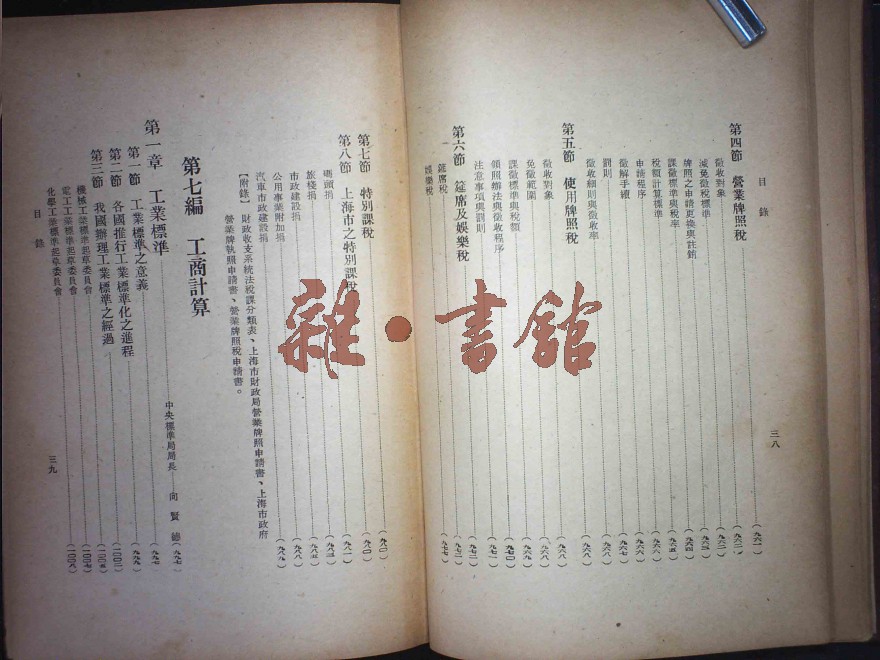 目錄
三八
第四節 營業牌照稅（九六一）
徵收對象（九六二）
減免徵稅標準（九六二）
牌照之申請更換與註銷（九六四）
課徵標準與稅率（九六五）
稅額計算標準（九六六）
申請程序（九六六）
徵解手續（九六七）
罰則（九六八）
徵收細則與徵收率（九六八）
第五節 使用牌照稅（九六八）
徵收對象（九六八）
免徵範圍（九六九）
課徵標準與稅額（九七〇）
領照辦法與徵收程序（九七一）
注意事項與罰則
第六節 筵席及娛樂稅（九七二）
筵席稅
娛樂稅
第七節 特別課稅（九八〇）
第八節 上海市之特別課稅（九八一）
碼頭捐（九八三）
旅棧捐（九八五）
市政建設捐
公用事業附加捐（九八八）
汽車市政建設捐（九八九）
【附錄】 財政收支系統法稅課分類表、上海市財政局營業牌照申請書、上海市政府
營業牌執照申請書、營業牌照稅申請書。
第七編 工商計算
中央標準局局長 向賢德（九九七）
第一章 工業標準（九九七）
第一節 工業標準之意義（九九九）
第二節 各國推行工業標準化之進程（一〇〇二）
第三節 我國辦理工業標準之經過（一〇〇五）
機械工業標準起草委員會（一〇〇七）
電工工業標準起草委員會
化學工業標準起草委員會（一〇〇九）
目錄
三九
雜·書館